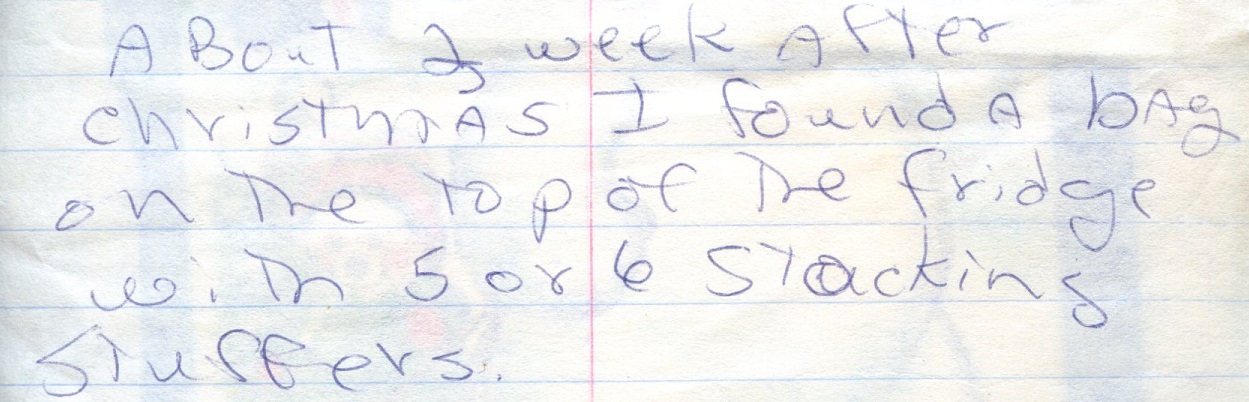 ABout 2 week After
christmAs I found A bAg
on The top of The fridge
with 5 or 6 Stacking
Stuffers.